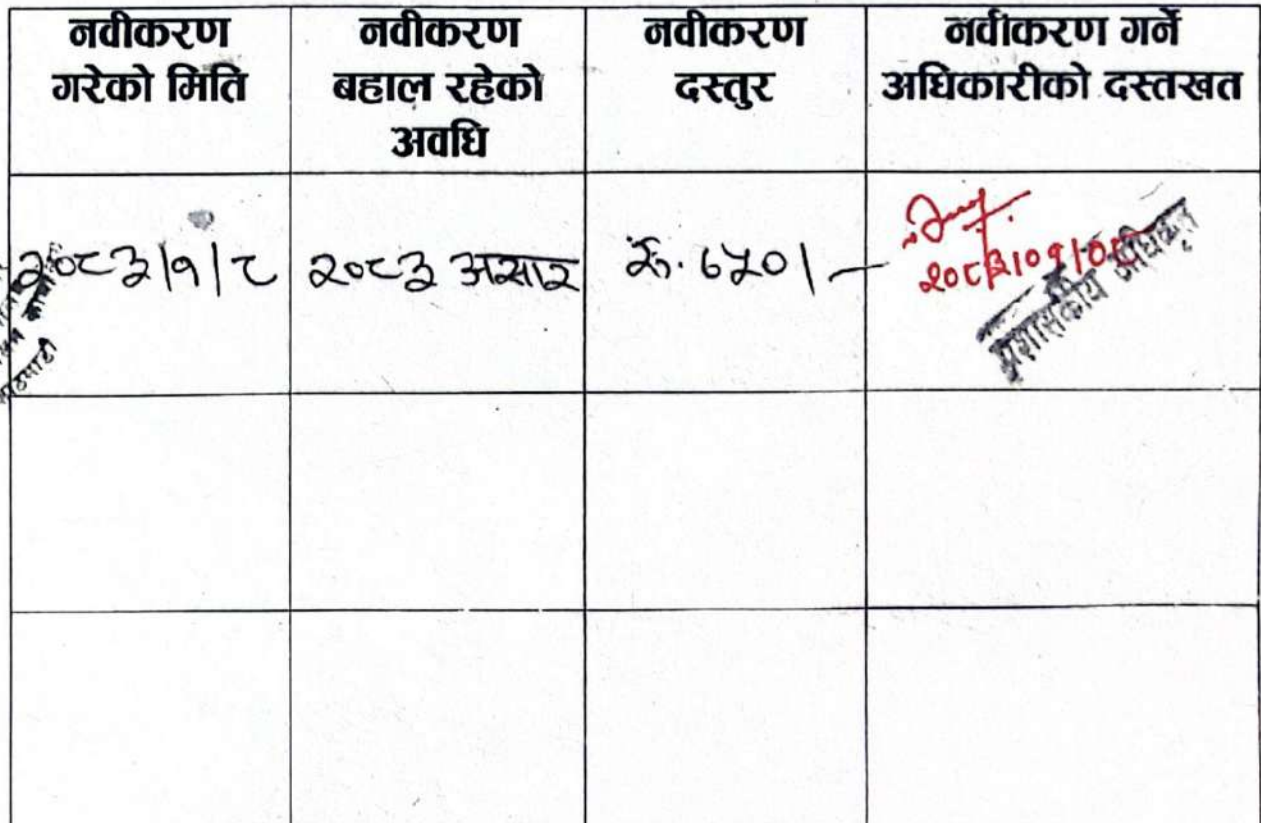 नवीकरण गरेको मिति
नवीकरण बहाल रहेको अवधि
नवीकरण दस्तुर
नर्वीकरण गर्ने अधिकारीको दस्तखत
२०८३/१/८
२०८३ असार
रु. ७५०/-
२०८३/०१/०८
प्रशासकीय अधिकृत